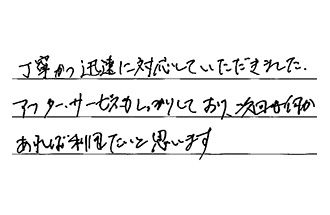 丁寧かつ迅速に対応していただきました.
アフター・サービスもしっかりしており、次回も何か
あれば利用したいと思います